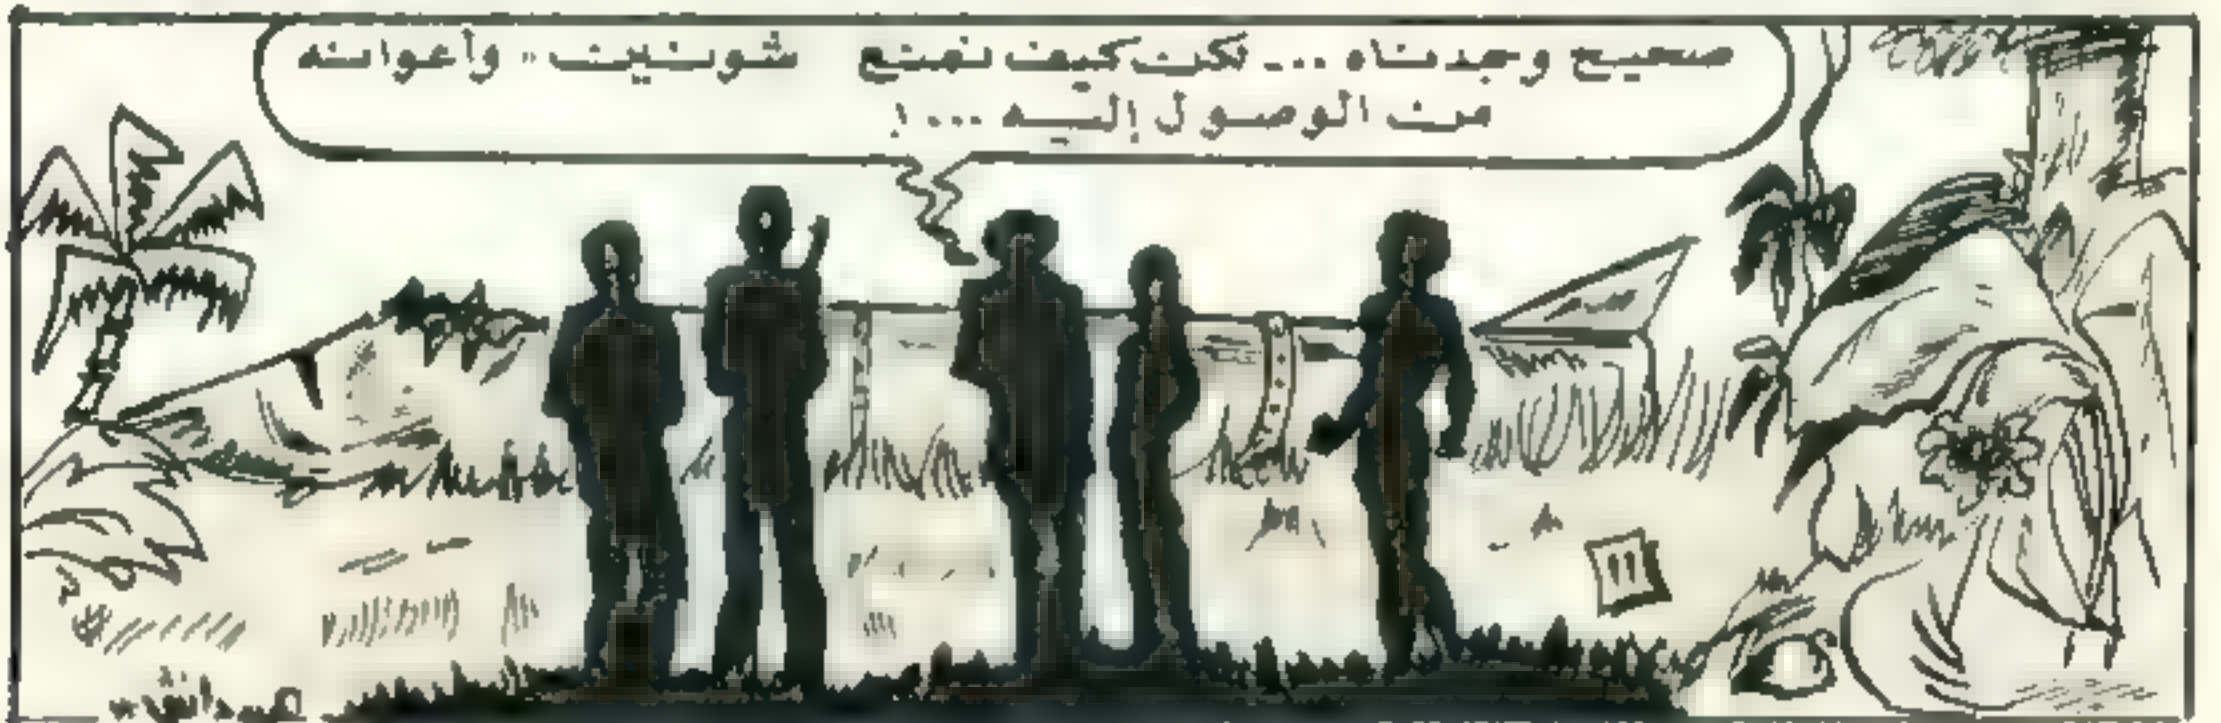 صحيح وجدناه ... لكن كيف نمنع شونيت " وأعوانه
من الوصول إليه ... !
١١